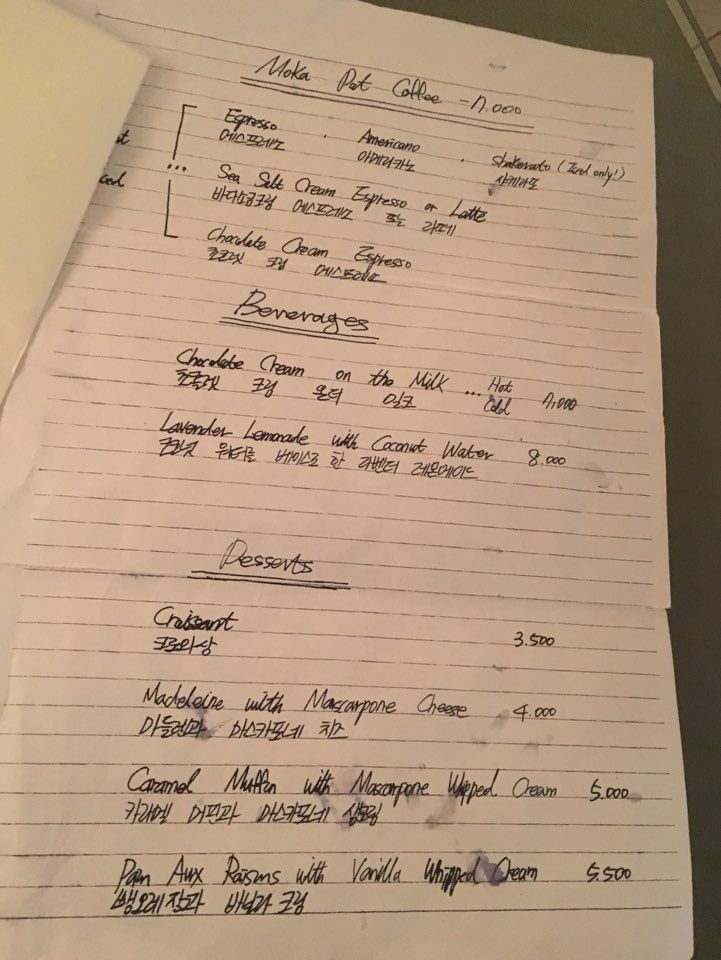 Moka Pot Coffee - 7.000
Espresso · Americano · Shakerato (Iced only!)
에스프레소 아메리카노 사케라또
...
Sea Salt Cream Espresso or Latte
바다소금크림 에스프레소 또는 라떼
Chocolate Cream Espresso
초코렛 크림 에스프레소
Beverages
Chocolate Cream on the Milk ... Hot
Cold 7.000
초콜렛 크림 온더 밀크
Lavender Lemonade with Coconut Water 8.000
코코넛 워터를 베이스로 한 라벤더 레몬에이드
Desserts
Croissant
크로와상 3.500
Madeleine with Mascarpone Cheese 4.000
마들렌과 마스카포네 치즈
Caramel Muffin with Mascarpone Whipped Cream 5.000
카라멜 머핀과 마스카포네 생크림
Pain Aux Raisins with Vanilla Whipped Cream 5.500
뺑오레장과 바닐라 크림